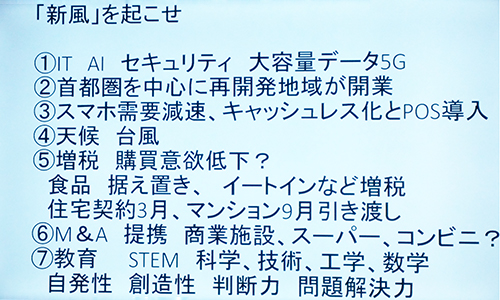 「新風」を起こせ
①IT AI セキュリティ 大容量データ5G
②首都圏を中心に再開発地域が開業
③スマホ需要減速、キャッシュレス化とPOS導入
④天候 台風
⑤増税 購買意欲低下？
食品 据え置き、 イートインなど増税
住宅契約3月、マンション9月引き渡し
⑥M＆A 提携 商業施設、スーパー、コンビニ？
⑦教育 STEM 科学、技術、工学、数学
自発性 創造性 判断力 問題解決力